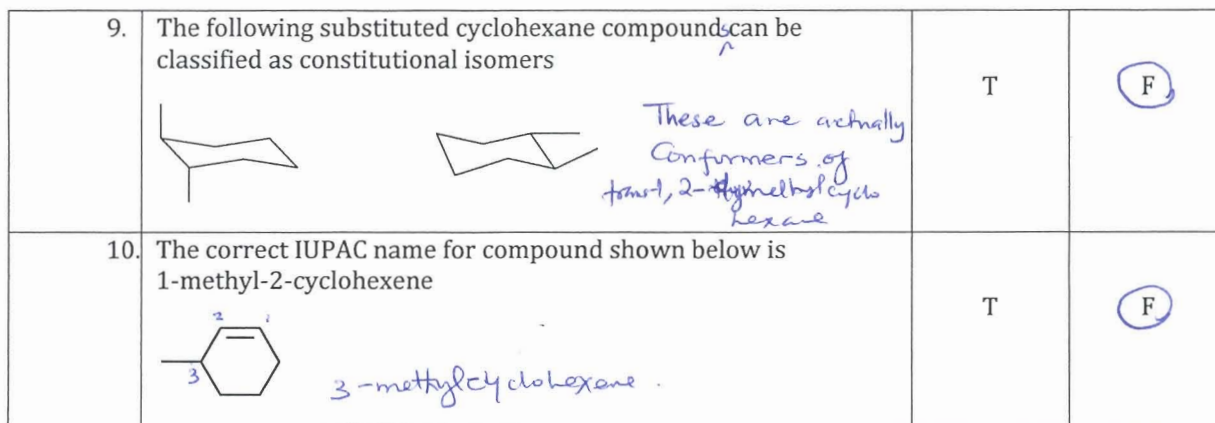 9. The following substituted cyclohexane compounds can be
classified as constitutional isomers
T F
These are actually
Conformers of
trans-1,2-dimethylcyclo
hexane
10. The correct IUPAC name for compound shown below is
1-methyl-2-cyclohexene
T F
2 1
3
3-methylcyclohexene.